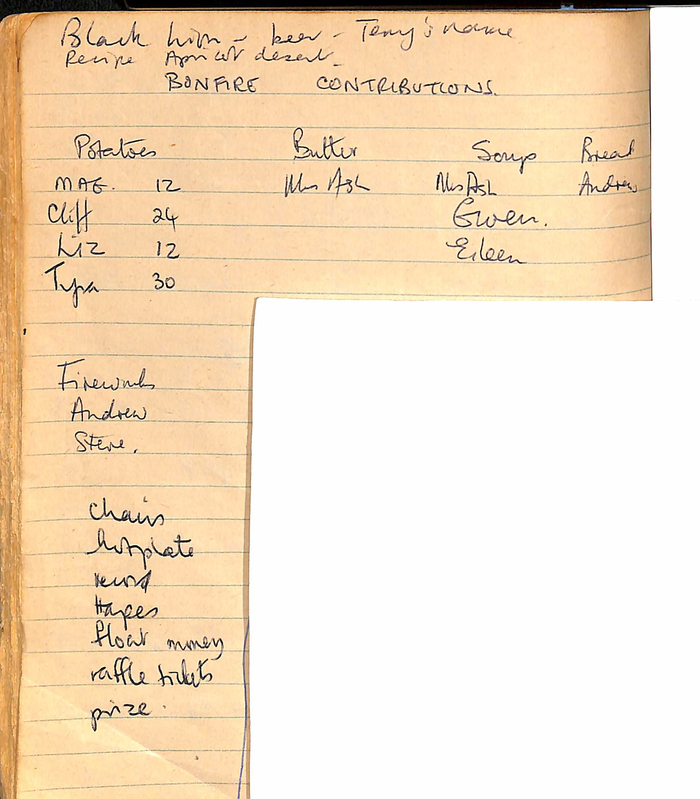 Black lion - beer - Terry's name
Recipe Apricot desert -
BONFIRE CONTRIBUTIONS.
Potatoes Butter Soup Bread
MAG. 12 Mrs Ash Mrs Ash Andrew
Cliff 24 Gwen.
Liz 12 Eileen
30
Fireworks
Andrew
Steve.
chairs
hotplate
record
tapes
float money
raffle tickets
prize.